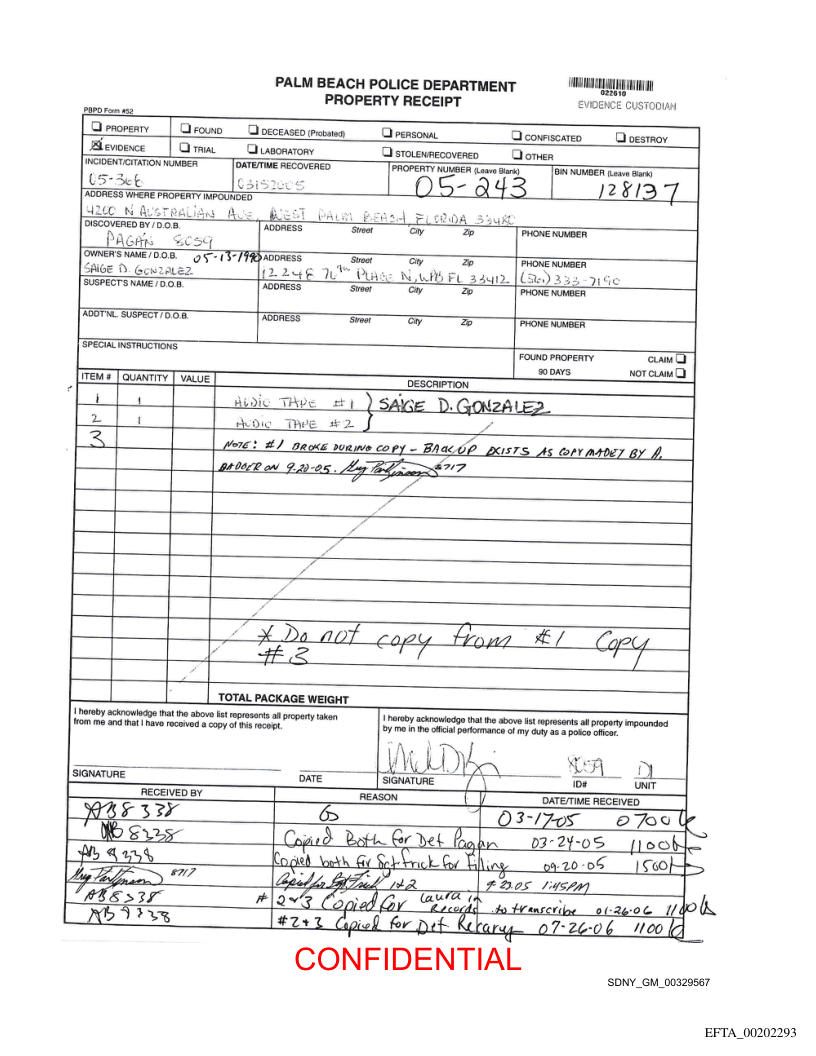 PALM BEACH POLICE DEPARTMENT
PROPERTY RECEIPT
022610
EVIDENCE CUSTODIAN
PBPD Form #52
PROPERTY FOUND DECEASED (Probated) PERSONAL CONFISCATED DESTROY
EVIDENCE TRIAL LABORATORY STOLEN/RECOVERED OTHER
INCIDENT/CITATION NUMBER DATE/TIME RECOVERED PROPERTY NUMBER (Leave Blank) BIN NUMBER (Leave Blank)
03152005 05-243 128137
ADDRESS WHERE PROPERTY IMPOUNDED
4200 N AUSTRALIAN AVE, WEST PALM BEACH FLORIDA 33480
DISCOVERED BY / D.O.B. ADDRESS Street City Zip PHONE NUMBER
PAGAN 8059
OWNER'S NAME / D.O.B. [redacted] ADDRESS Street City Zip PHONE NUMBER
[redacted]
SUSPECT'S NAME / D.O.B. ADDRESS Street City Zip PHONE NUMBER
ADDT'NL. SUSPECT / D.O.B. ADDRESS Street City Zip PHONE NUMBER
SPECIAL INSTRUCTIONS
FOUND PROPERTY CLAIM
90 DAYS NOT CLAIM
ITEM # QUANTITY VALUE DESCRIPTION
1 1 AUDIO TAPE #1 } [redacted]
2 1 AUDIO TAPE #2
3 NOTE: #1 BROKE DURING COPY - BACKUP EXISTS AS COPY MADE BY A.
BADGER ON 9-20-05. 8717
* Do not copy from #1 Copy
#3
TOTAL PACKAGE WEIGHT
I hereby acknowledge that the above list represents all property taken
from me and that I have received a copy of this receipt.
I hereby acknowledge that the above list represents all property impounded
by me in the official performance of my duty as a police officer.
8059 D1
SIGNATURE DATE SIGNATURE ID# UNIT
RECEIVED BY REASON DATE/TIME RECEIVED
AB8338 03-17-05 0700
AB 8338 Copied Both for Det Pagan 03-24-05 1100
AB 8338 Copied both for Sgt Frick for Filing 09-20-05 1500
8717 Copied for Sgt Frick 1&2 9-23-05 1:45PM
AB8338 # 2&3 Copied for Laura in Records to transcribe 01-26-06 1100
AB8338 #2+3 Copied for Det Recarey 07-26-06 1100
CONFIDENTIAL
SDNY_GM_00329567
EFTA_00202293